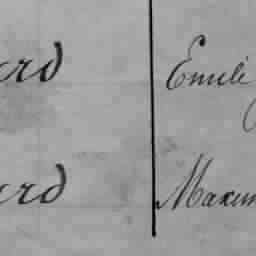 erd Emili
erd Maxim